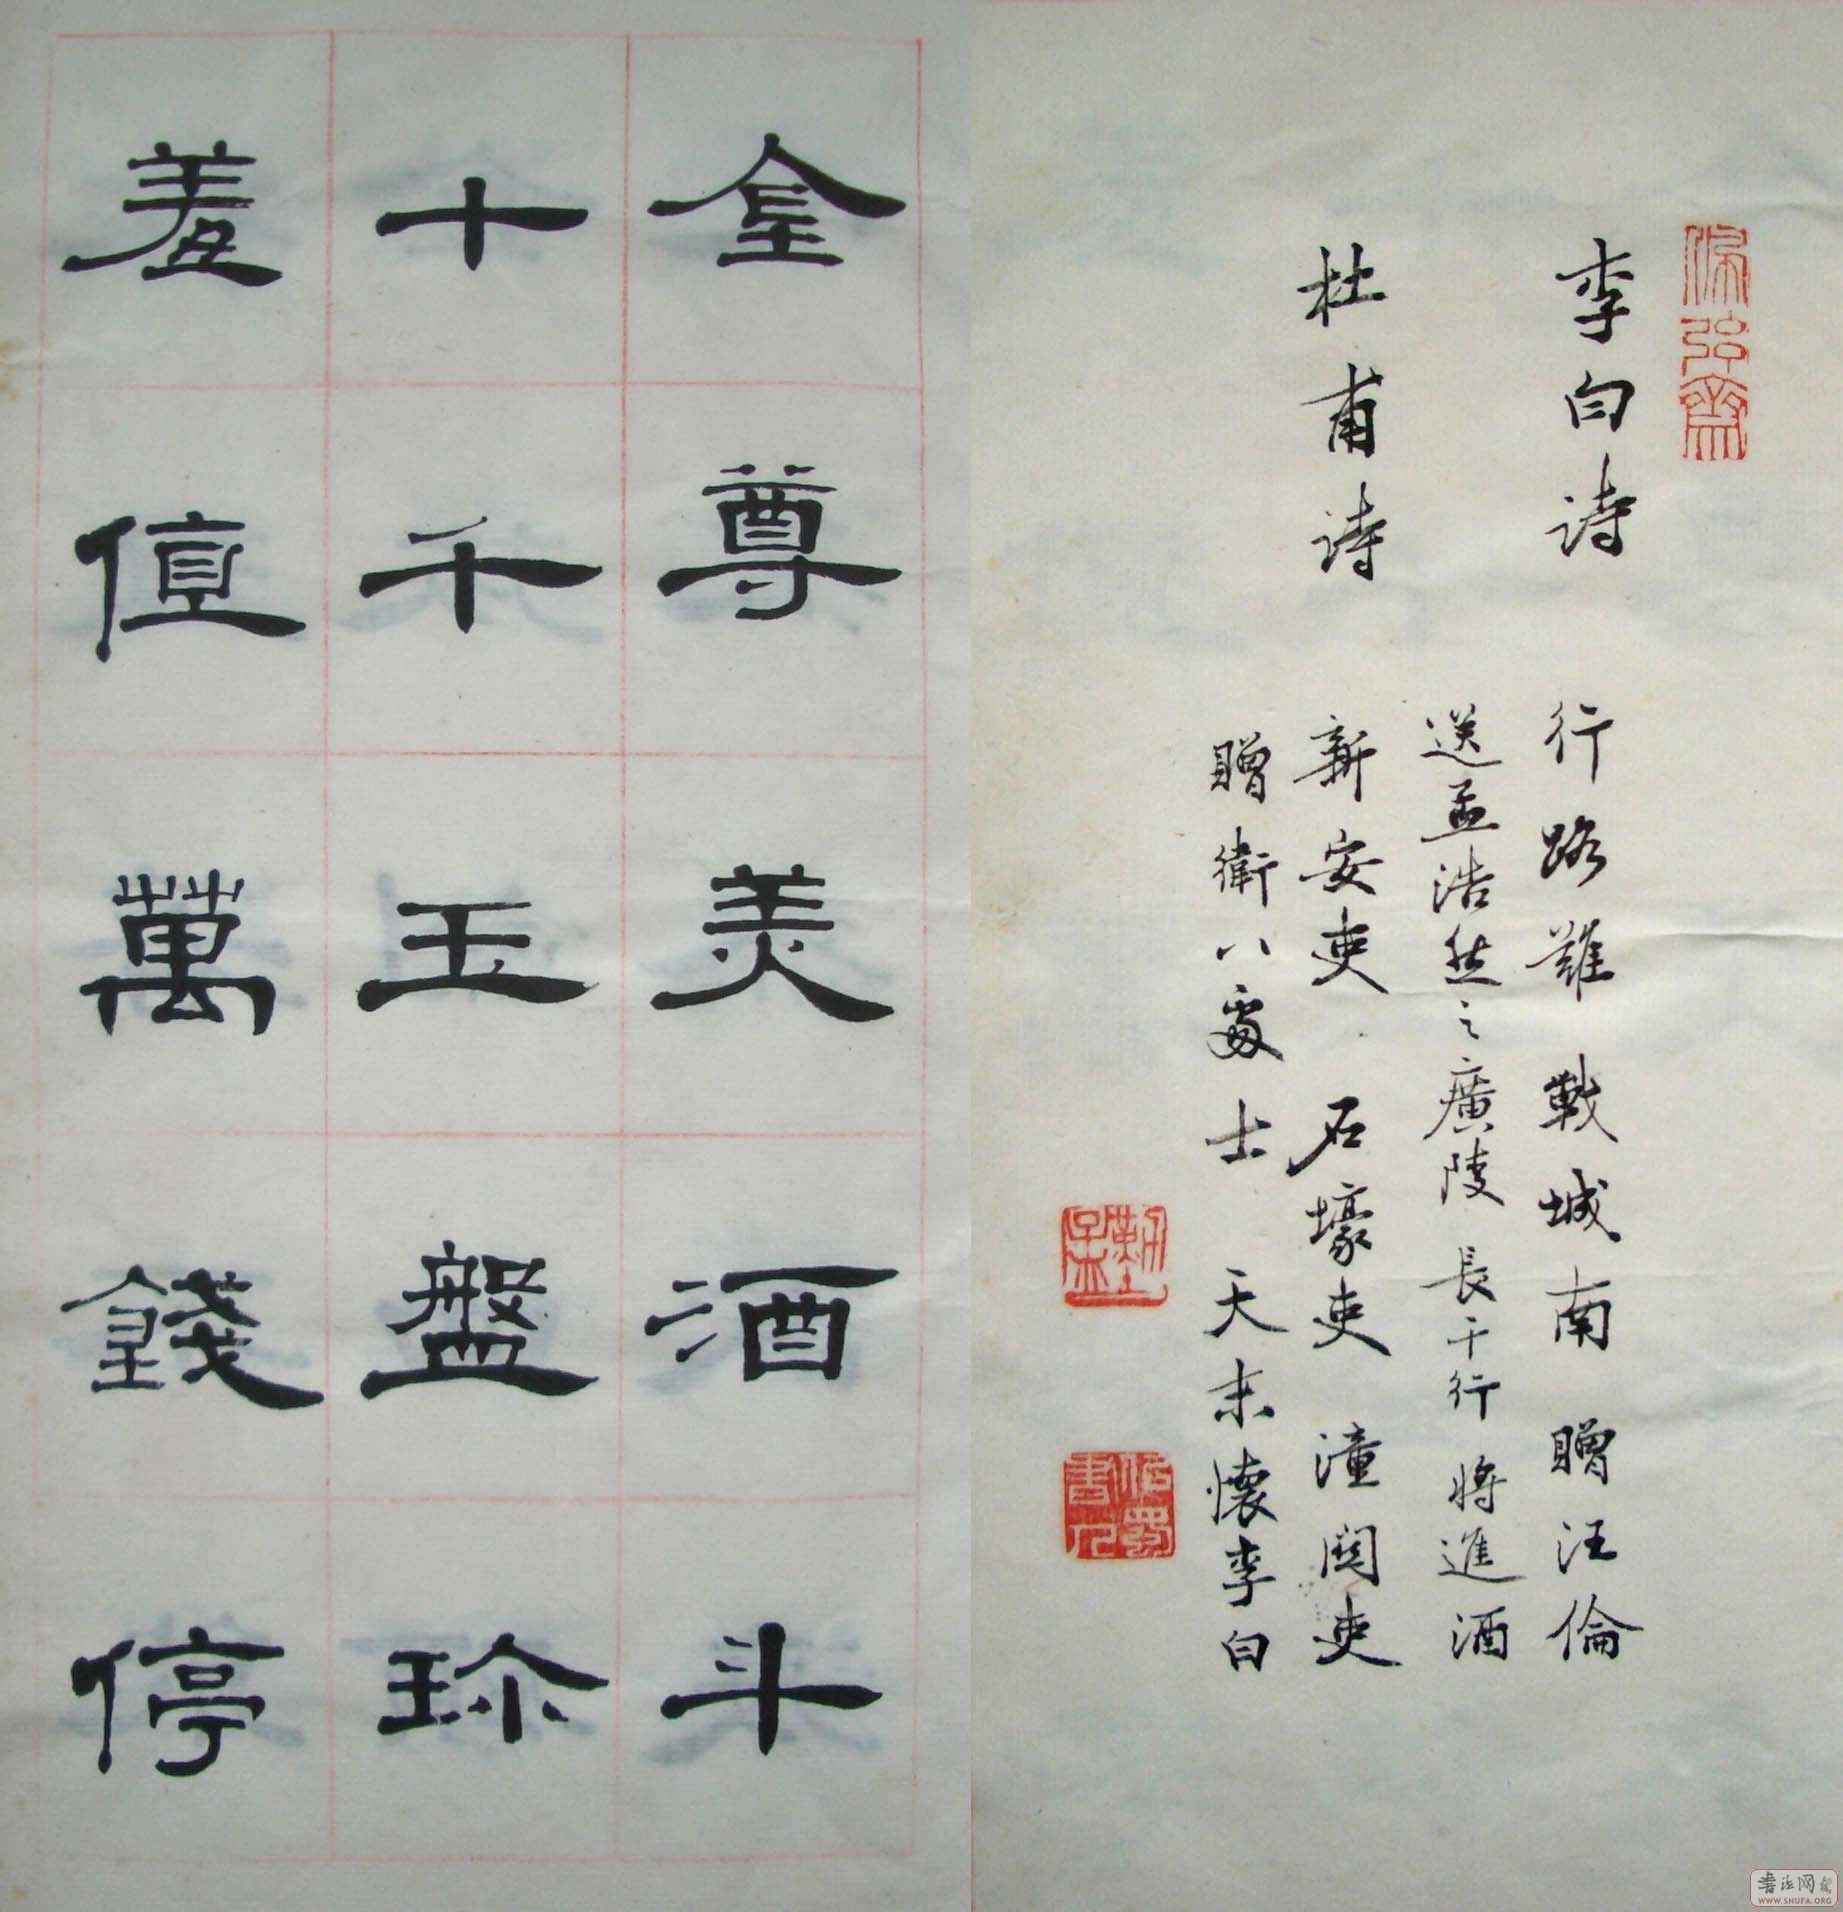 李白诗
行路難 戰城南 贈汪倫
送孟浩然之廣陵 長干行 将進酒
杜甫诗
新安吏 石壕吏 潼関吏
贈衛八處士 天末懷李白
金尊美酒斗
十千玉盤珎
羞值萬錢停
書法网
WWW.SHUFA.ORG